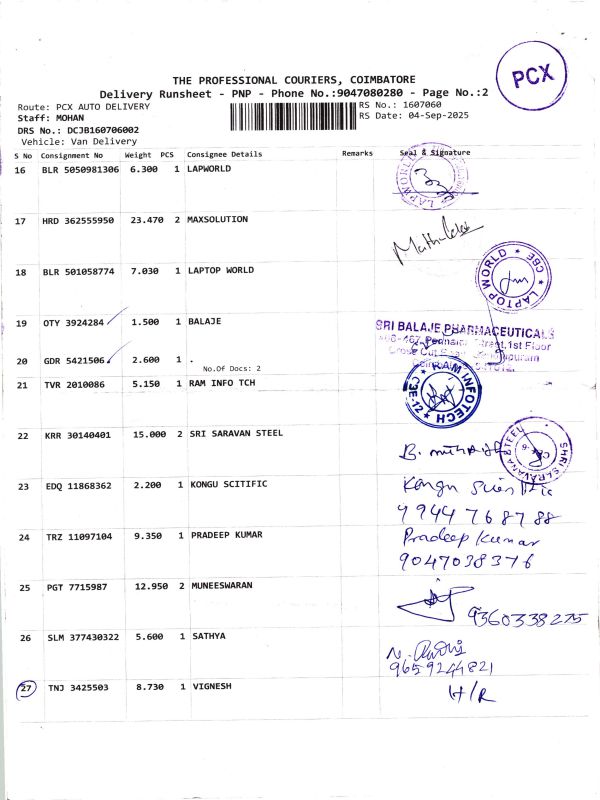 PCX
THE PROFESSIONAL COURIERS, COIMBATORE
Delivery Runsheet - PNP - Phone No.:9047080280 - Page No.:2
Route: PCX AUTO DELIVERY
RS No.: 1607060
Staff: MOHAN
RS Date: 04-Sep-2025
DRS No.: DCJB160706002
Vehicle: Van Delivery
S No Consignment No Weight PCS Consignee Details Remarks Seal & Signature
16 BLR 5050981306 6.300 1 LAPWORLD
LAPWORLD
17 HRD 362555950 23.470 2 MAXSOLUTION
18 BLR 501058774 7.030 1 LAPTOP WORLD
LAPTOP WORLD * CBE *
19 OTY 3924284 1.500 1 BALAJE
SRI BALAJE PHARMACEUTICALS
Street, 1st Floor
20 GDR 5421506 2.600 1 .
No.Of Docs: 2
21 TVR 2010086 5.150 1 RAM INFO TCH
RAM INFOTECH * CBE-12 *
22 KRR 30140401 15.000 2 SRI SARAVAN STEEL
SHRI SARAVANA STEEL
23 EDQ 11868362 2.200 1 KONGU SCITIFIC
Kongu
9944768788
24 TRZ 11097104 9.350 1 PRADEEP KUMAR
Pradeep Kumar
9047038376
25 PGT 7715987 12.950 2 MUNEESWARAN
9360338275
26 SLM 377430322 5.600 1 SATHYA
9659244821
27 TNJ 3425503 8.730 1 VIGNESH
H/R